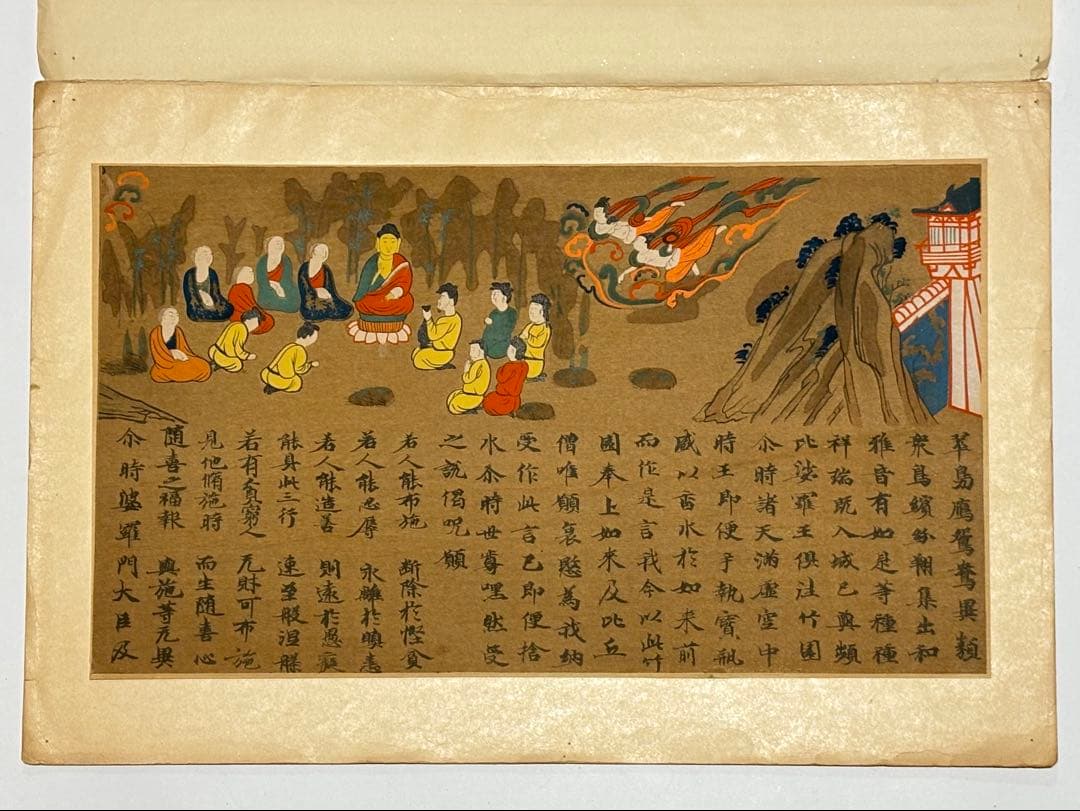 翠鳧鴈鴛鴦異類
衆鳥繽紛翔集出和
雅音有如是等種種
祥瑞既入城已與頻
比娑羅王俱往竹園
尒時諸天滿虛空中
時王即便手執寶瓶
盛以香水於如来前
而作是言我今以此竹
園奉上如来及比丘
僧唯願哀愍為我納
受作此言已即便捨
水尒時世尊嘿然受
之說偈呪願
若人能布施 斷除於慳貪
若人能忍辱 永離於瞋恚
若人能造善 則遠於愚癡
能具此三行 速至般涅槃
若有貧窮人 无財可布施
見他脩施時 而生随喜心
随喜之福報 與施等无異
尒時婆羅門大臣及